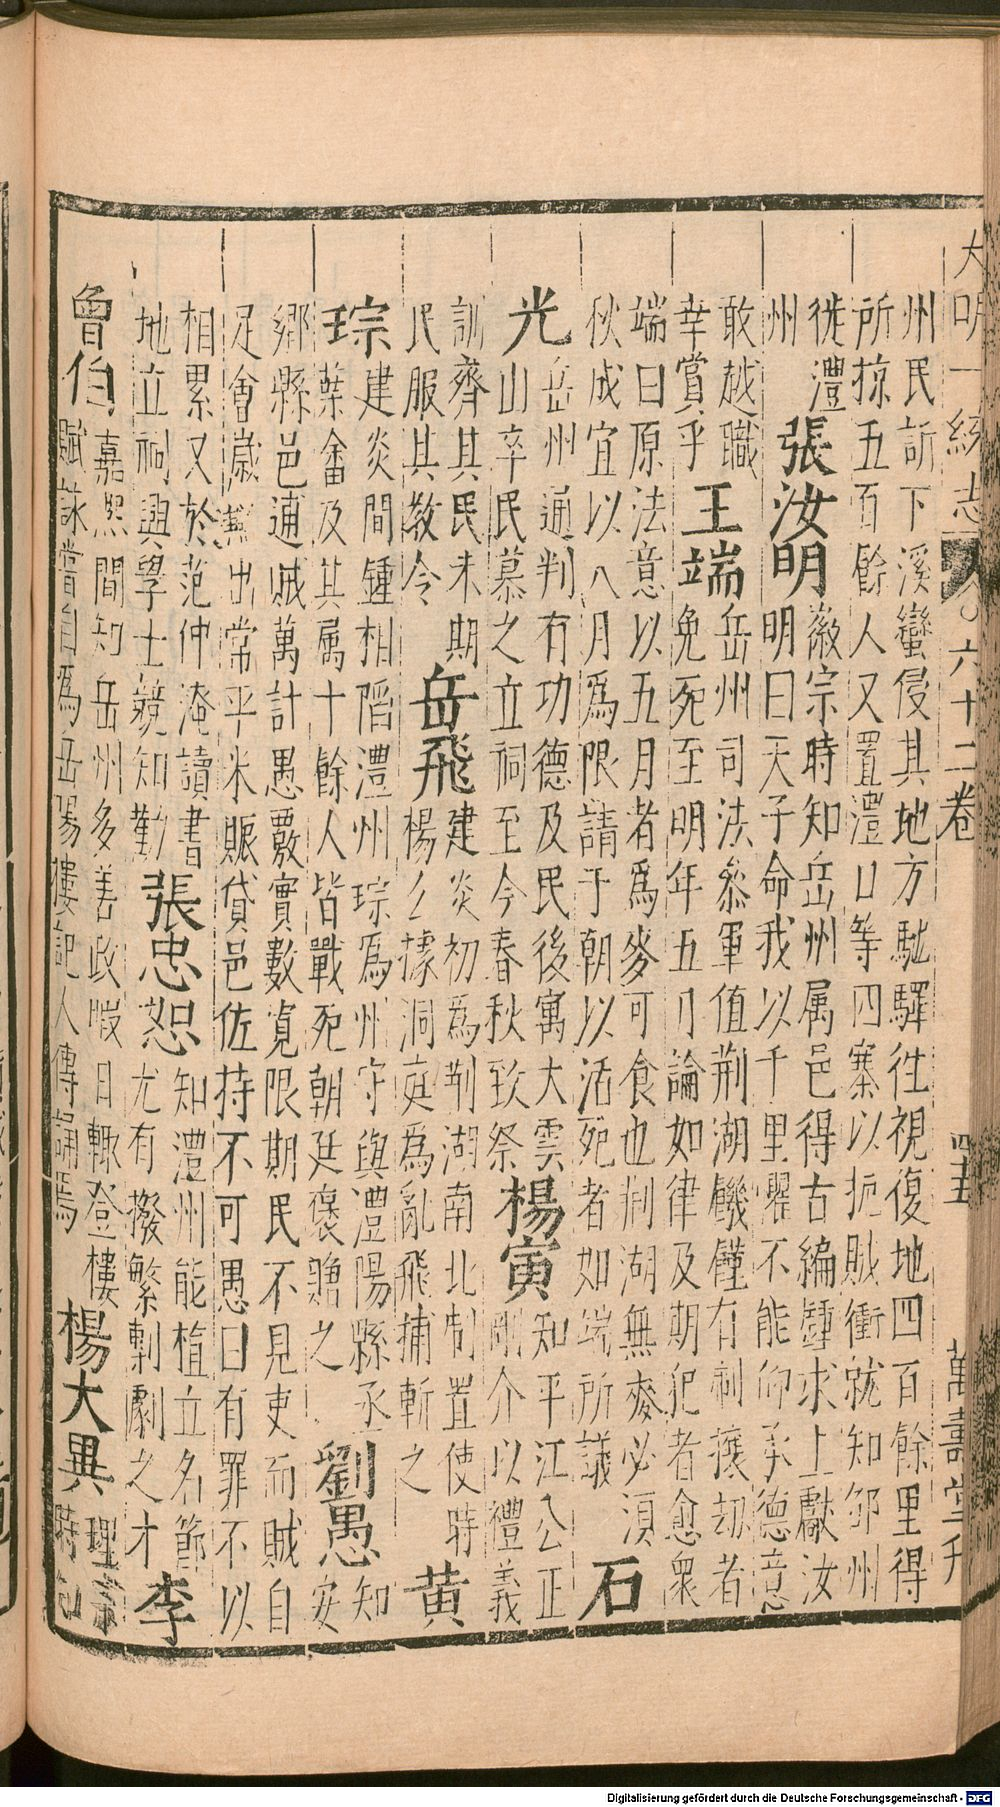 大明一統志 六十二卷 四十五 萬壽堂刋
州民訢下溪蠻侵其地方馳驛徃視復地四百餘里得
所掠五百餘人又置澧口等四寨以扼賊衝就知邠州
徙澧州 張汝明 徽宗時知岳州属邑得古編鍾求上獻汝
明曰天子命我以千里懼不能仰承德意
敢越職幸賞乎 王端 岳州司法叅軍值荆湖饑饉有剽攘刼者
免死至明年五月論如律及期犯者愈衆
端曰原法意以五月者為麥可食也荆湖無麥必湏
秋成宜以八月為限請于朝以活死者如端所議 石
光 岳州通判有功德及民後寓大雲
山卒民慕之立祠至今春秋致祭 楊寅 知平江公正
剛介以禮義
訓齊其民未期
民服其教令 岳飛 建炎初為荆湖南北制置使時
楊么據洞庭為亂飛捕斬之 黄
琮 建炎間鍾相陷澧州琮為州守與澧陽縣丞
葉畬及其属十餘人皆戰死朝廷褒贈之 劉愚 知
安
鄉縣邑逋賊萬計愚覈實數寛限期民不見吏而賊自
足會歲歉出常平米賑貸邑佐持不可愚曰有罪不以
相累又於范仲淹讀書
地立祠興學士競知勸 張忠恕 知澧州能植立名節
尤有撥繁剸劇之才 李
曾伯 嘉熈間知岳州多善政暇日輙登樓
賦詠嘗自為岳陽樓記人傳誦焉 楊大異 理宗
時知
Digitalisierung gefördert durch die Deutsche Forschungsgemeinschaft - DFG